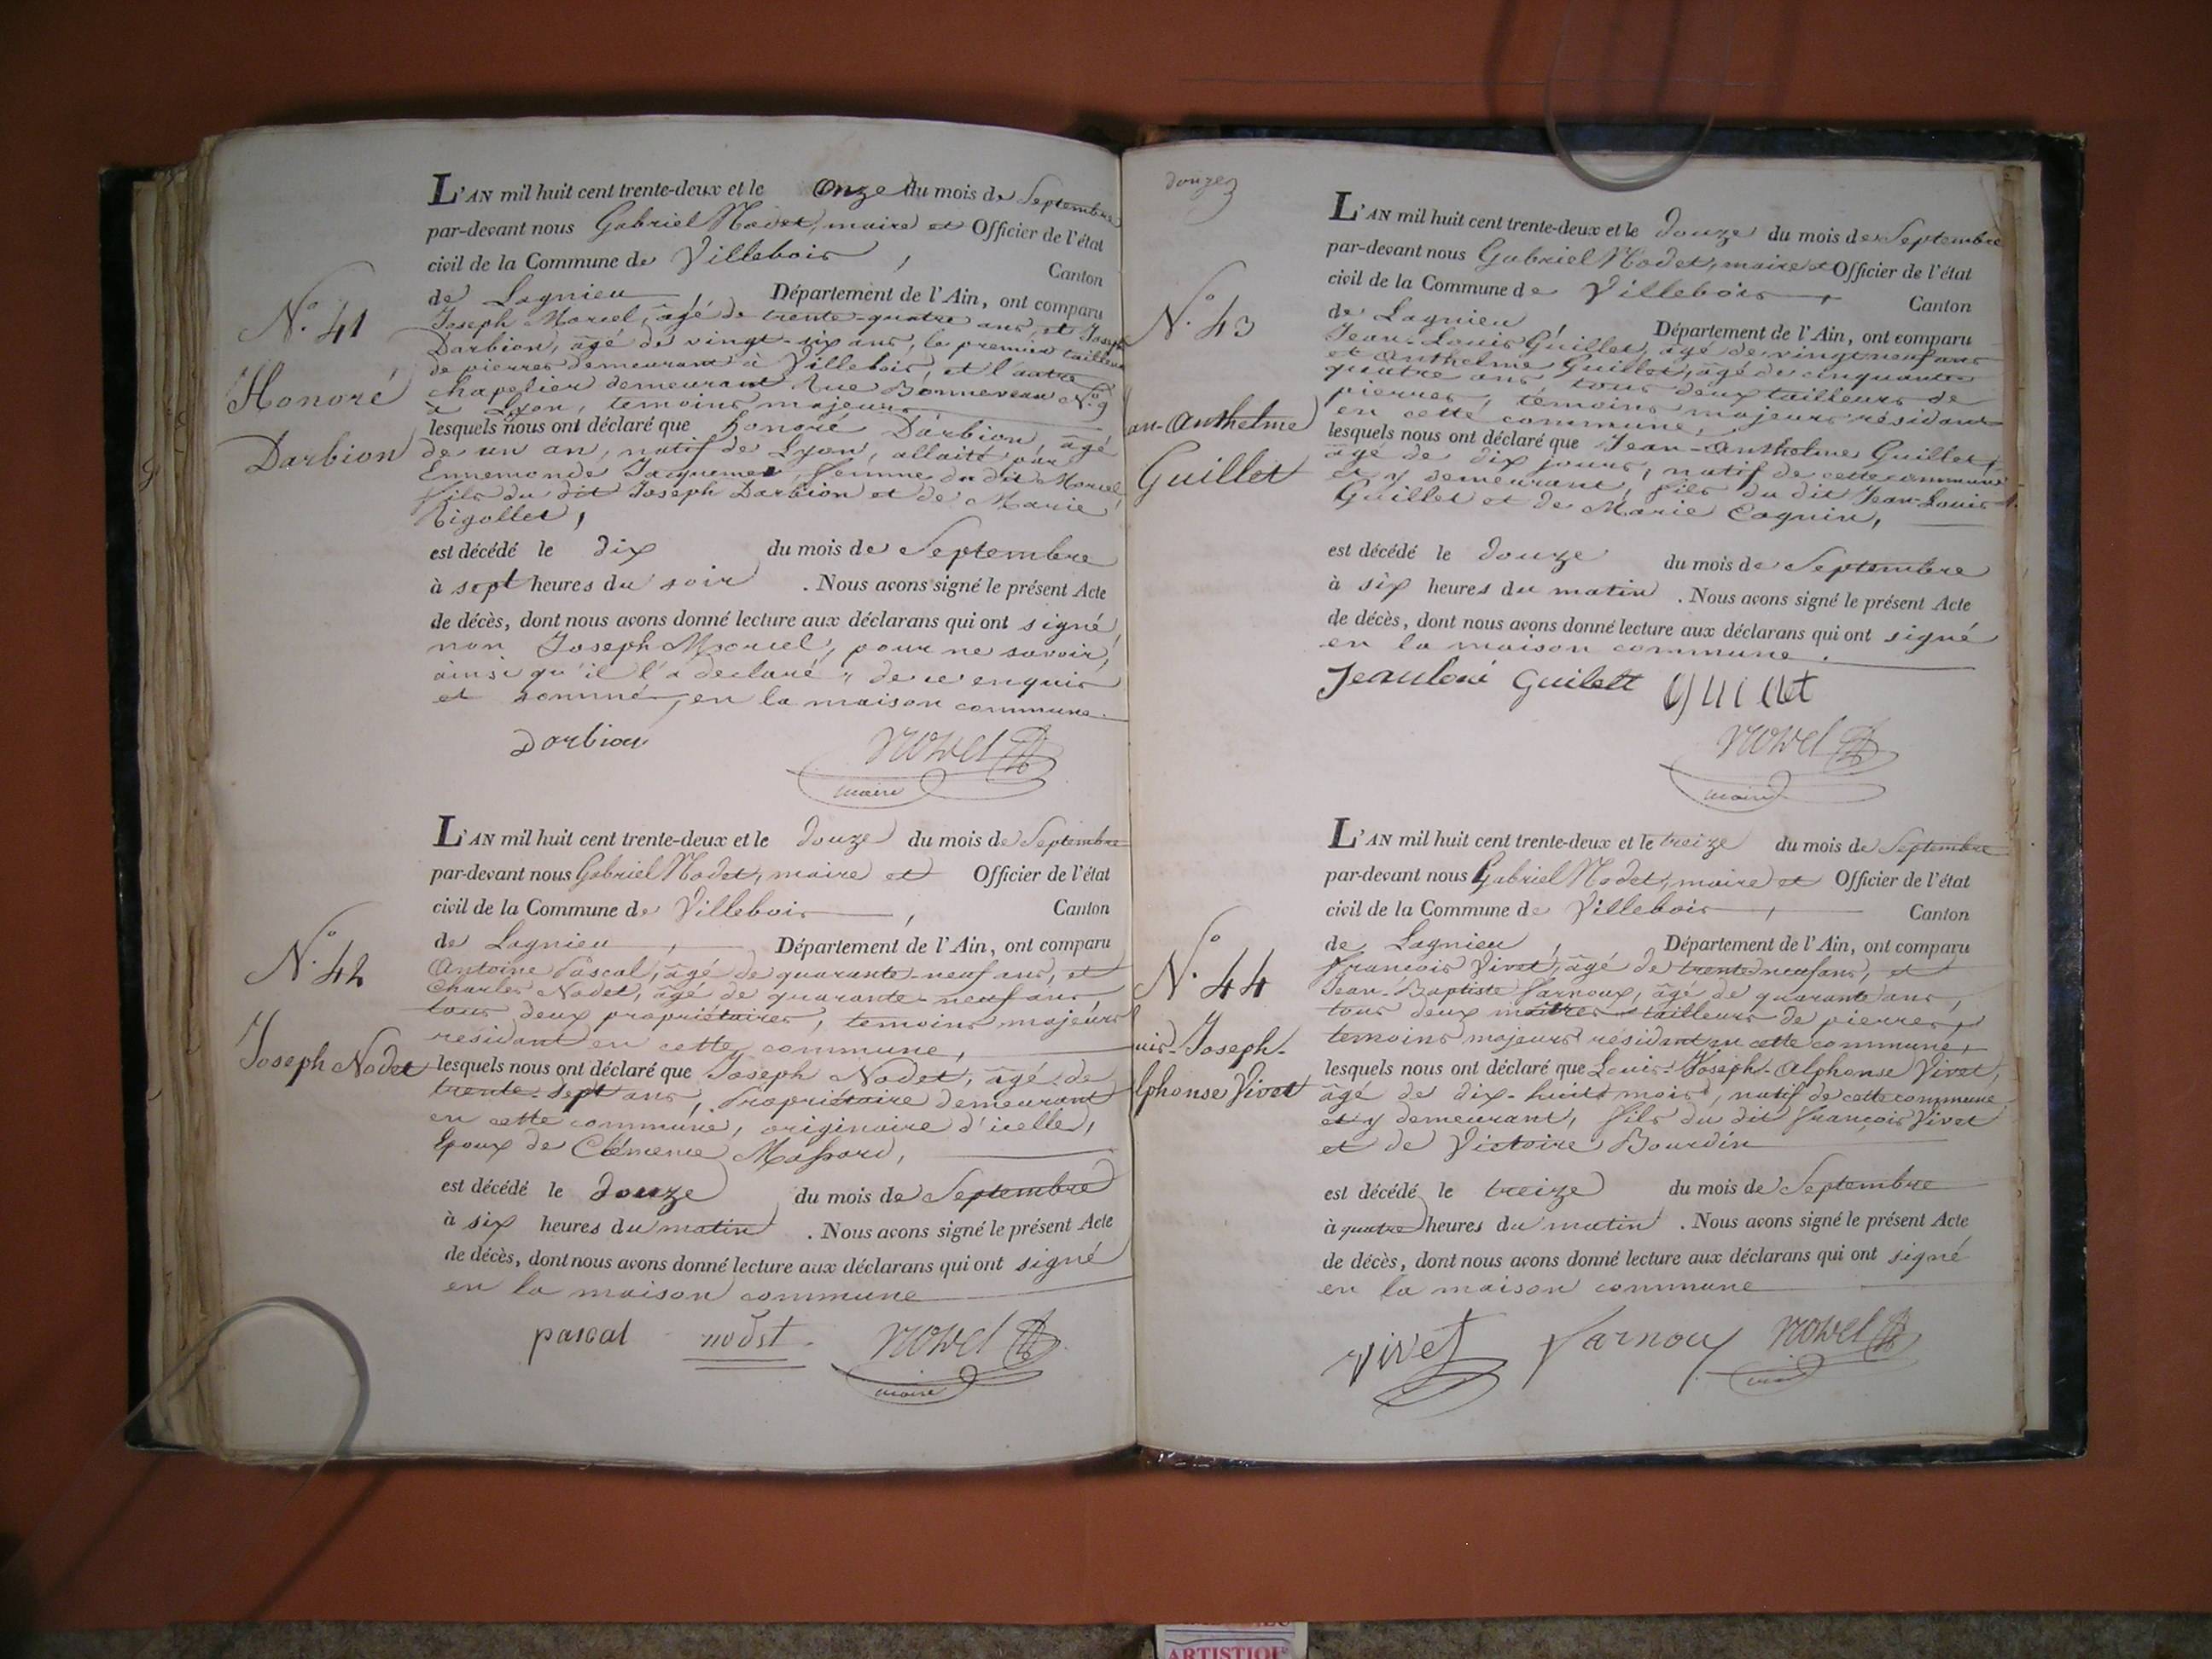 L'AN mil huit cent trente-deux et le onze du mois de Septembre
par-devant nous Gabriel Nodet, maire et Officier de l'état
civil de la Commune de Villebois, Canton
de Lagnieu, Département de l'Ain, ont comparu
Joseph Morcel, âgé de trente-quatre ans, et Joseph
Darbion, âgé de vingt-six ans, le premier tailleur
de pierres demeurant à Villebois, et l'autre
chapelier demeurant Rue Bonneveau N.° 9
à Lyon, temoins majeurs
lesquels nous ont déclaré que honoré Darbion, âgé
de un an, natif de Lyon, allaité par
Ennemonde Jaquemet, femme du dit Morcel,
fils du dit Joseph Darbion et de Marie
Rigollet,
est décédé le dix du mois de Septembre
à sept heures du soir. Nous avons signé le présent Acte
de décès, dont nous avons donné lecture aux déclarans qui ont signé,
non Joseph Morcel, pour ne savoir,
ainsi qu'il l'a declaré, de ce enquis
et sommé, en la maison commune.
Darbion
Nodet
maire
N.° 41
Honoré
Darbion
L'AN mil huit cent trente-deux et le douze du mois de Septembre
par-devant nous Gabriel Nodet, maire et Officier de l'état
civil de la Commune de Villebois, Canton
de Lagnieu, Département de l'Ain, ont comparu
Antoine Pascal, âgé de quarante-neuf ans, et
Charles Nodet, âgé de quarante-neuf ans,
tous deux propriétaires, temoins majeurs
résidant en cette commune,
lesquels nous ont déclaré que Joseph Nodet, âgé de
trente-sept ans, Propriétaire demeurant
en cette commune, originaire d'icelle,
Epoux de Clémence Massard,
est décédé le douze du mois de Septembre
à six heures du matin. Nous avons signé le présent Acte
de décès, dont nous avons donné lecture aux déclarans qui ont signé
en la maison commune
pascal nodet Nodet
maire
N.° 42
Joseph Nodet
douze
L'AN mil huit cent trente-deux et le douze du mois de Septembre
par-devant nous Gabriel Nodet, maire et Officier de l'état
civil de la Commune de Villebois, Canton
de Lagnieu, Département de l'Ain, ont comparu
Jean-Louis Guillet, âgé de vingt neuf ans
et Anthelme Guillet, âgé de cinquante
quatre ans, tous deux tailleurs de
pierres, témoins majeurs résidans
en cette commune,
lesquels nous ont déclaré que Jean-Anthelme Guillet,
âgé de dix jours, natif de cette commune
et y demeurant, fils du dit Jean-Louis
Guillet et de Marie Coquin,
est décédé le douze du mois de Septembre
à six heures du matin. Nous avons signé le présent Acte
de décès, dont nous avons donné lecture aux déclarans qui ont signé
en la maison commune.
Jeanloui Guilett Guillet
Nodet
maire
N.° 43
an-Anthelme
Guillet
L'AN mil huit cent trente-deux et le treize du mois de Septembre
par-devant nous Gabriel Nodet, maire et Officier de l'état
civil de la Commune de Villebois, Canton
de Lagnieu, Département de l'Ain, ont comparu
François Vivet, âgé de trente neuf ans, et
Jean-Baptiste Varnoux, âgé de quarante ans,
tous deux maîtres tailleurs de pierres,
temoins majeurs résidant en cette commune,
lesquels nous ont déclaré que Louis-Joseph-Alphonse Vivet,
âgé de dix-huit mois, natif de cette commune
et y demeurant, fils du dit François Vivet
et de Victoire Bourdin
est décédé le treize du mois de Septembre
à quatre heures du matin. Nous avons signé le présent Acte
de décès, dont nous avons donné lecture aux déclarans qui ont signé
en la maison commune
Vivet Varnoux Nodet
maire
N.° 44
uis-Joseph-
lphonse Vivet
ARTISTIQU